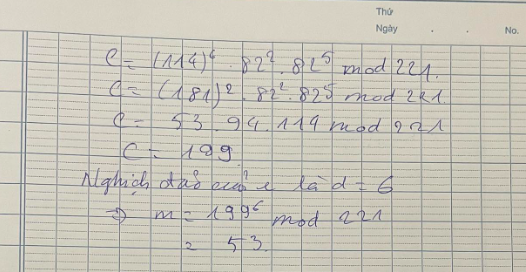 Thứ
Ngày . . No.
C = (114)⁶ . 82² . 82⁵ mod 221.
C = (181)² . 82² . 82⁵ mod 221.
C = 53 . 94 . 114 mod 221
C = 199.
Nghịch đảo của e là d = 6
⇒ m = 199⁶ mod 221
= 53.